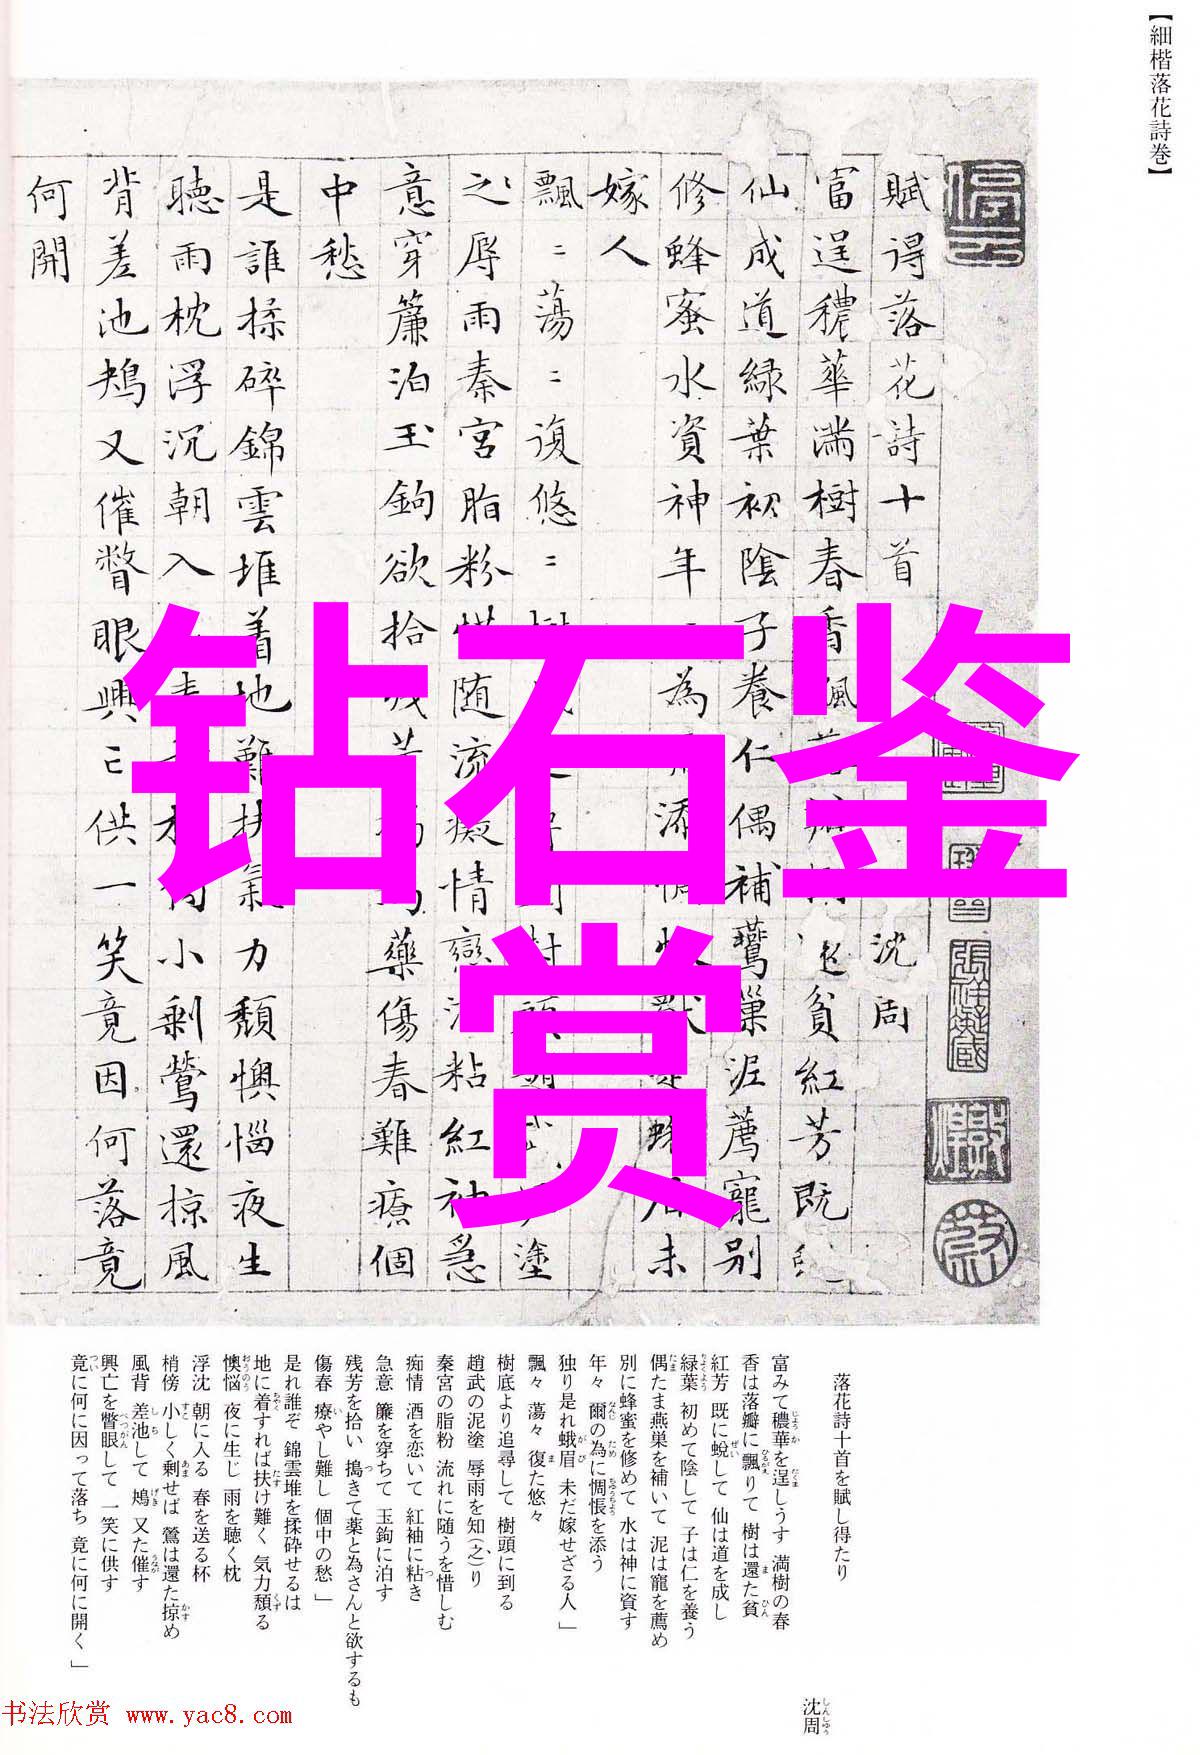 【細楷落花詩巻】
賦得落花詩十首 沈周
富逞穠華滿樹春香飄 貧紅芳既
仙成道綠葉初陰子養仁偶補鷰巢泥薦寵別
修蜂蜜水資神年 為 添 未
嫁人
飄〻蕩〻復悠〻 塗
之辱雨秦宮脂粉惜随流癡情戀酒粘紅袖急
意穿簾泊玉鉤欲拾 藥傷春難療個
中愁
是誰揉碎錦雲堆着地難扶氣力頹懊惱夜生
聴雨枕浮沉朝入 小剩鶯還掠風
背差池鴂又催瞥眼興亡供一笑竟因何落竟
何開
钻石鉴
赏
落花詩十首を賦し得たり
沈周
富みて穠華を逞しうす 満樹の春
香は落瓣に飄りて 樹は還た貧
紅芳 既に蛻して 仙は道を成し
緑葉 初めて陰して 子は仁を養う
偶たま燕巣を補いて 泥は寵を薦め
別に蜂蜜を修めて 水は神に資す
年々 爾の為に惆悵を添う
独り是れ蛾眉 未だ嫁せざる人」
飄々 蕩々 復た悠々
樹底より追尋して 樹頭に到る
趙武の泥塗 辱雨を知(之)り
秦宮の脂粉 流れに随うを惜しむ
痴情 酒を恋いて 紅袖に粘き
急意 簾を穿ちて 玉鉤に泊す
残芳を拾い 搗きて薬と為さんと欲するも
傷春 療やし難し 個中の愁」
是れ誰ぞ 錦雲堆を揉砕せるは
地に着すれば扶け難く 気力頽る
懊悩 夜に生じ 雨を聴く枕
浮沈 朝に入る 春を送る杯
梢傍 小しく剰せば 鶯は還た掠め
風背 差池して 鴂 又た催す
興亡を瞥眼して 一笑に供す
竟に何に因って落ち 竟に何に開く」
书法欣赏 www.yac8.com